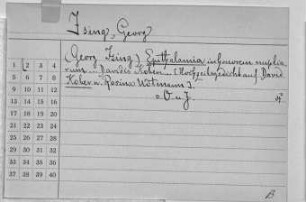 Ising, Georg
(Georg Ising:) Epithalamia in honorem nuptia-
rum ... Davidis Koher ... (Hochzeitsgedicht auf David
Koher u. Rosina
o. O. u. J.
4°
1 2 3 4
5 6 7 8
9 10 11 12
13 14 15 16
17 18 19 20
21 22 23 24
25 26 27 28
29 30 31 32
33 34 35 36
37 38 39 40